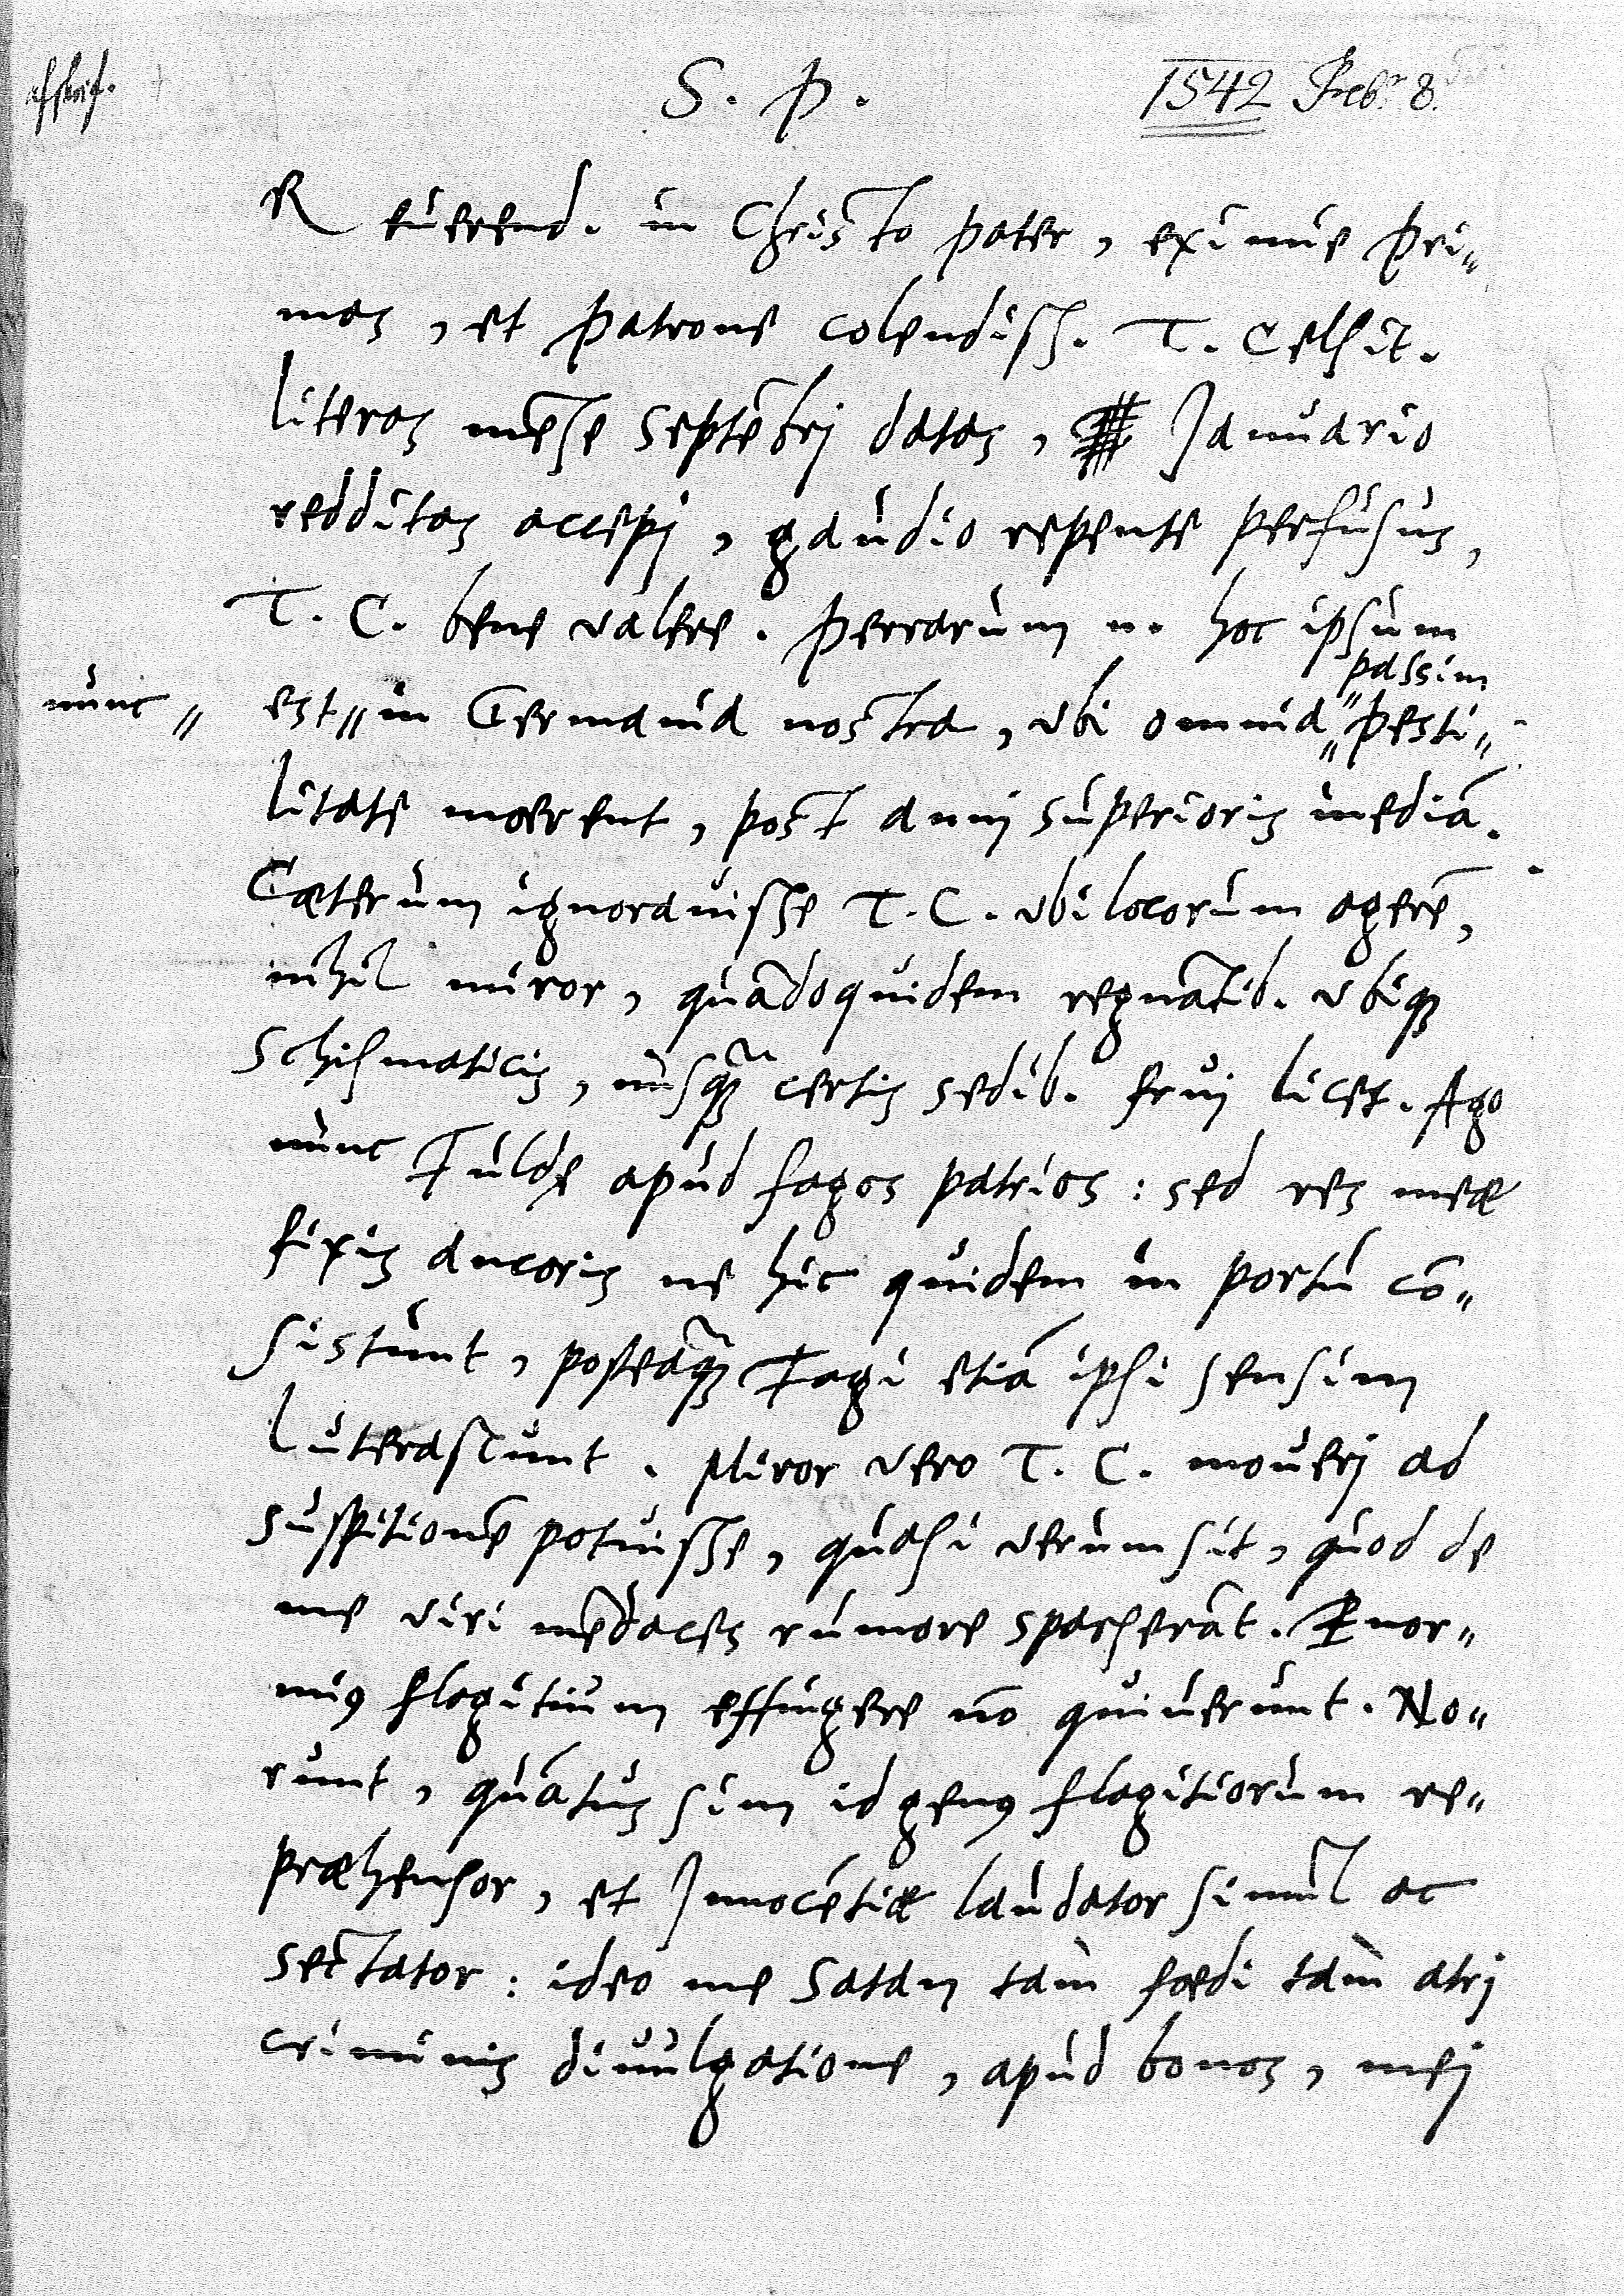 afschrif.
S. P. 1542 Feb. 8.
Reuerend. in Christo pater, eximie pri„
mas, et patrone colendiss. T. Celsit.
literas mēse Septēbrj datas, Januario
redditas accepj, gaudio repente perfusus,
T. C. bene valere. perrarum n. hoc ipsum
passim
nunc „ est „ in Germania nostra, vbi omnia „ pesti„
litate moerent, post annj superioris inediā.
Cæterum ignorauisse T. C. vbi locorum agerē,
nihil miror, quādoquidem regnātib. vbiqꝫ
schismaticis, nusqꝫ̃ certis sedib. fruj licet. Ago
nunc Fuldę apud fagos patrios: sed res meæ
fixis ancoris ne hic quidem in portu cō„
sistunt, posteaqꝫ̃ Fagi etiā ipsi sensim
luterascunt. Miror vero T. C. mouerj ad
suspitionē potuisse, quasi verum sit, quod de
me viri mēdaces rumore sparserāt. Enor„
miꝰ flagitium effingere nō quiuerunt. No„
runt, quātus sim id genꝰ flagitiorum re„
præhensor, et Jnnocētiæ laudator simul ac
sectator: ideo me Satan tam foedi tam atrj
criminis diuulgatione, apud bonos, mej